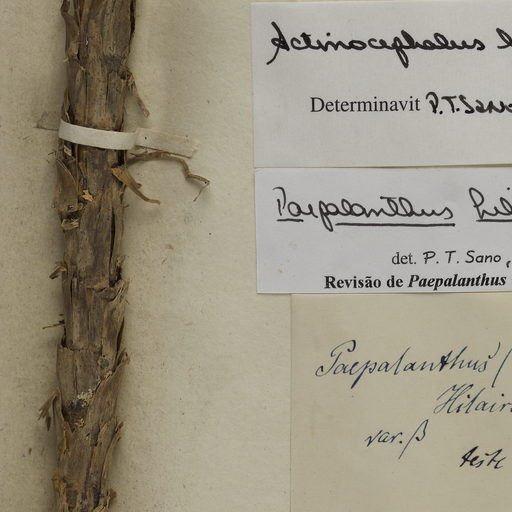 Actinocephalus
Determinavit P.T.Sano
Paepalanthus hil
det. P. T. Sano,
Revisão de Paepalanthus
Paepalanthus (
Hilair
var. β
teste